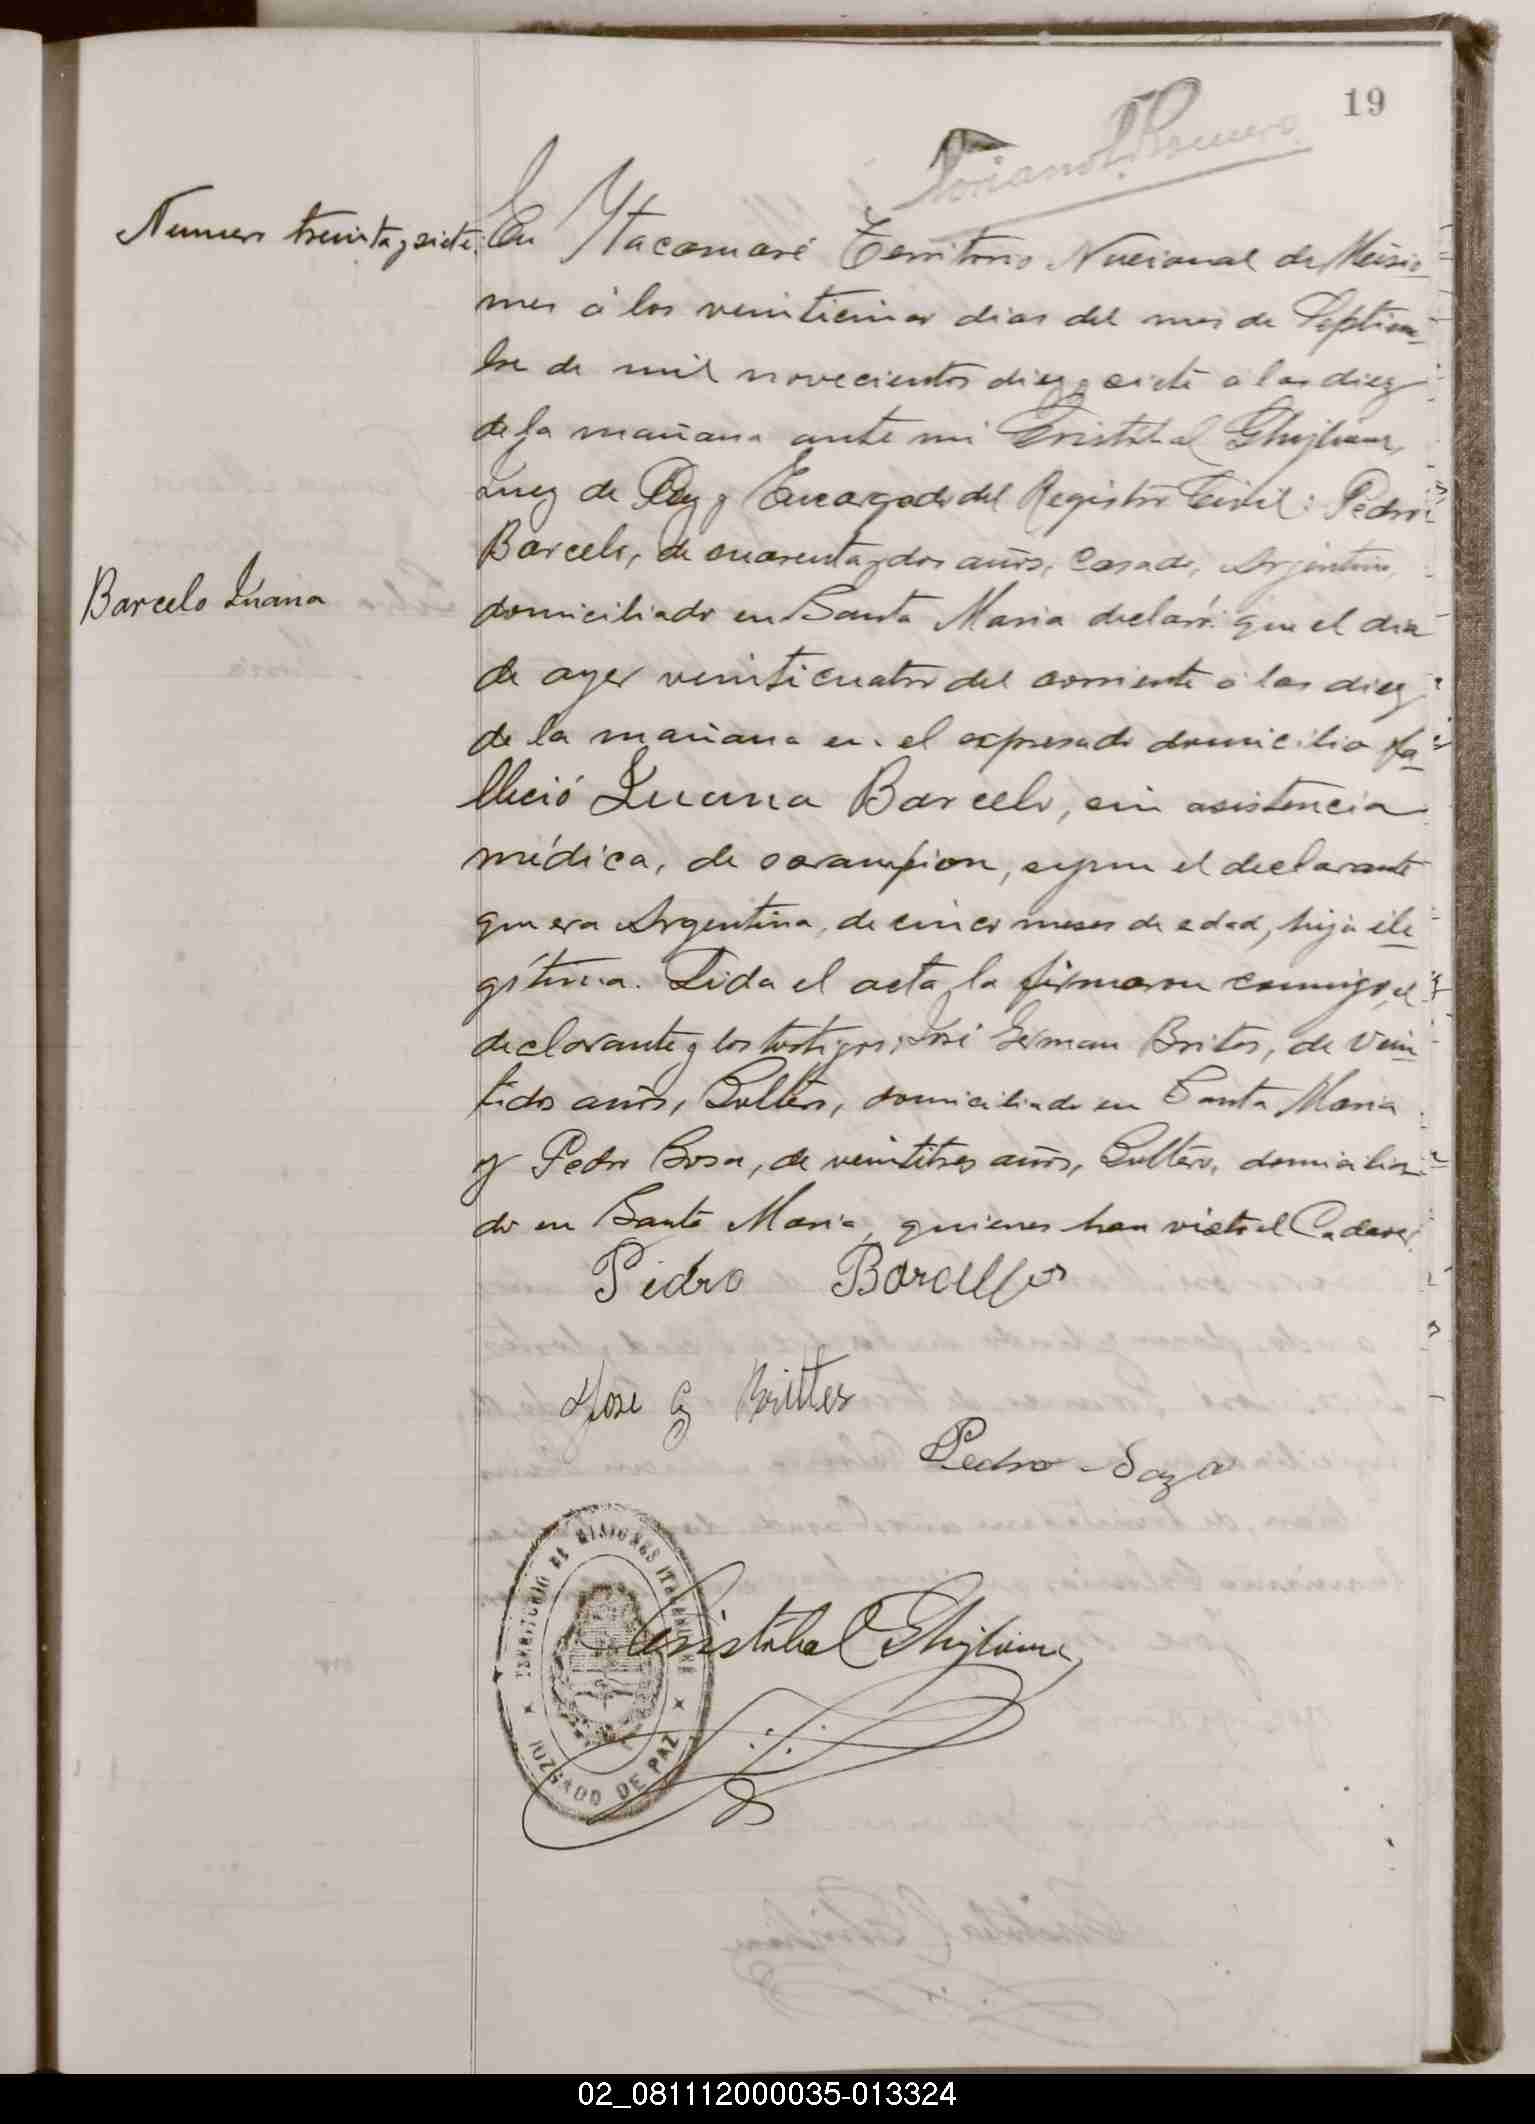 19
Numero treinta y siete.
En Ytacaruaré Territorio Nacional de Misio-
nes á los veinticinco dias del mes de Septiem-
bre de mil novecientos diez y siete á las diez
de la mañana ante mi Cristobal Ghigliones
Juez de Paz y Encargado del Registro Civil: Pedro
Barcelo, de cuarenta y dos años, Casado, Argentino,
Barcelo Juana
domiciliado en Santa Maria declaró: que el dia
de ayer veinticuatro del corriente á las diez
de la mañana en el expresado domicilio fa-
lleció Juana Barcelo, sin asistencia
médica, de sarampion, segun el declarante
que era Argentina, de cinco meses de edad, hija ile-
gítima. Leida el acta la firmaron conmigo, el
declarante y los testigos: José German Brites, de vein-
tidos años, Soltero, domiciliado en Santa Maria
y Pedro Sosa, de veintitres años, Soltero, domicilia-
do en Santa Maria, quienes han visto el Cadaver.
Pedro Barcellos
Jose G Brittes
Pedro Soza
TERRITORIO DE MISIONES
Cristobal
JUZGADO DE PAZ
02_081112000035-013324